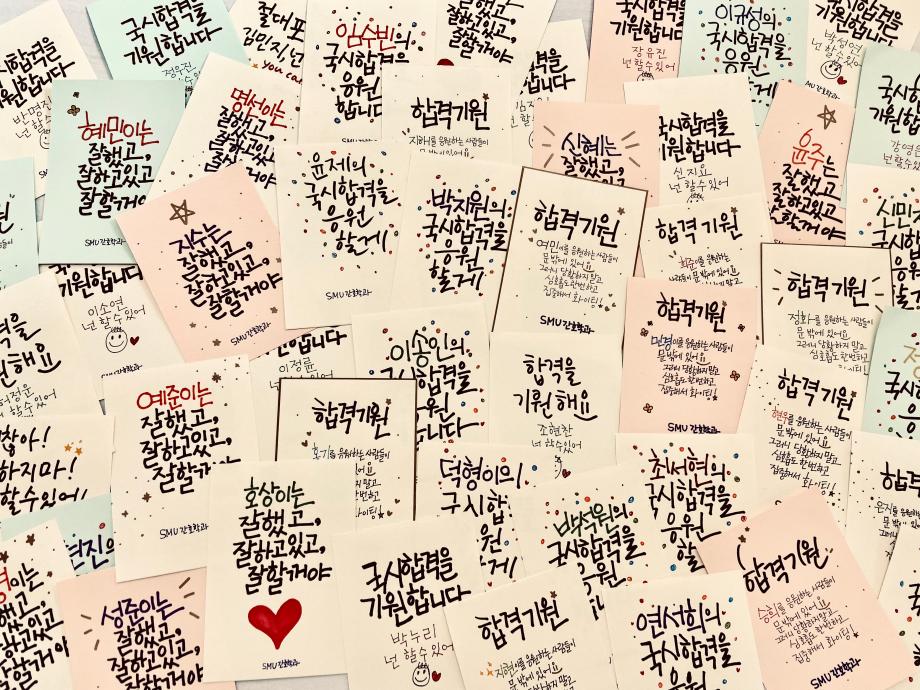 국시합격을
기원합니다
반명진
국시합격을
기원합니다
정유진
넌 할 수 있어
절대 포
김민지 넌
you can
임수빈의
국시합격을
응원
합니다
국시합격을
잘할거야
국시합격을
기원합니다
장유진
넌 할 수 있어
이규성의
국시합격을
응원
합니다
기원합니다
박성연
넌 할 수 있어
SMU 간호학과
혜민이는
잘했고,
잘하고있고,
잘할거야
SMU 간호학과
명서이는
잘했고,
잘하고있고,
합격기원
지혜를 응원하는 사람들이
신혜는
잘했고,
국시합격을
기원합니다
신지요
넌 할 수 있어
윤주는
잘했고,
잘하고있고
잘할거야
국시합격을
기원합니다
강영은
넌 할 수 있어
지수는
잘했고,
잘하고있고,
잘할거야
SMU 간호학과
윤제의
국시합격을
응원
할게
SMU 간호학과
박지원의
국시합격을
응원
할게
합격기원
여민이를 응원하는 사람들이
문 밖에 있어요
그러니 당황하지말고
심호흡 한번하고
집중해서 화이팅!
SMU 간호학과
합격기원
희준이를 응원하는
사람들이 문 밖에 있어요
합격기원
정화를 응원하는 사람들이
문 밖에 있어요
그러니 당황하지말고
심호흡 한번하고
집중해서 화이팅!
신민
국시합격을
기원합니다
이소연
넌 할 수 있어
합격을
기원해요
넌 할 수 있어
합니다
이정륜
넌 할 수 있어
이송인의
국시합격을
응원
합니다
합격을
기원해요
조현찬
넌 할 수 있어
합격기원
민경이를 응원하는 사람들이
문 밖에 있어요
그러니 당황하지말고
심호흡 한번하고
집중해서 화이팅!
SMU 간호학과
합격기원
현우를 응원하는 사람들이
문 밖에 있어요
그러니 당황하지말고
심호흡 한번하고
집중해서 화이팅!
예준이는
잘했고,
잘하고있고,
잘할거야
SMU 간호학과
합격기원
홍기를 응원하는 사람들이
찮아!
하지마!
할수있어!
현진의
호상이는
잘했고,
잘하고있고,
잘할거야
SMU 간호학과
덕형이의
국시합
응원
할게
박석원의
국시합격을
응원
최서현의
국시합격을
응원
할
합격
성준이는
잘했고,
잘하고있고,
잘할거야
국시합격을
기원합니다
박누리
넌 할 수 있어
합격기원
지현이를 응원하는 사람들이
문 밖에 있어요
연서희의
국시합격을
응원
합격기원
승희를 응원하는 사람들이
문 밖에 있어요
그러니 당황하지말고
심호흡 한번하고
집중해서 화이팅!
SMU 간호학과